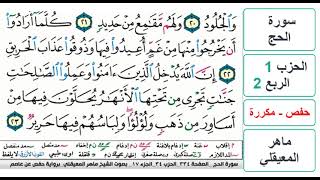 وَٱلْجُلُودُ ٢٠ وَلَهُم مَّقَٰمِعُ مِنْ حَدِيدٍ ٢١ كُلَّمَآ أَرَادُوٓا۟
أَن يَخْرُجُوا۟ مِنْهَا مِنْ غَمٍّ أُعِيدُوا۟ فِيهَا وَذُوقُوا۟ عَذَابَ ٱلْحَرِيقِ
٢٢ إِنَّ ٱللَّهَ يُدْخِلُ ٱلَّذِينَ ءَامَنُوا۟ وَعَمِلُوا۟ ٱلصَّٰلِحَٰتِ
جَنَّٰتٍ تَجْرِى مِن تَحْتِهَا ٱلْأَنْهَٰرُ يُحَلَّوْنَ فِيهَا مِنْ
أَسَاوِرَ مِن ذَهَبٍ وَلُؤْلُؤًا وَلِبَاسُهُمْ فِيهَا حَرِيرٌ ٢٣
سورة الحج، الصفحة ٣٣٤، الحزب ٣٤، الجزء ١٧، بصوت الشيخ ماهر المعيقلي، برواية حفص عن عاصم
سورة
الحج
الحزب 1
الربع 2
حفص - مكررة
ماهر
المعيقلي